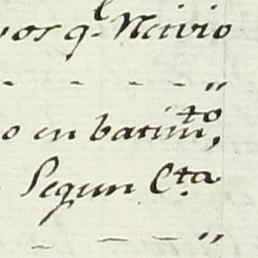 vos q.l Nario
- - - - - "
o en batim,to
Segun C.ta
- - - "